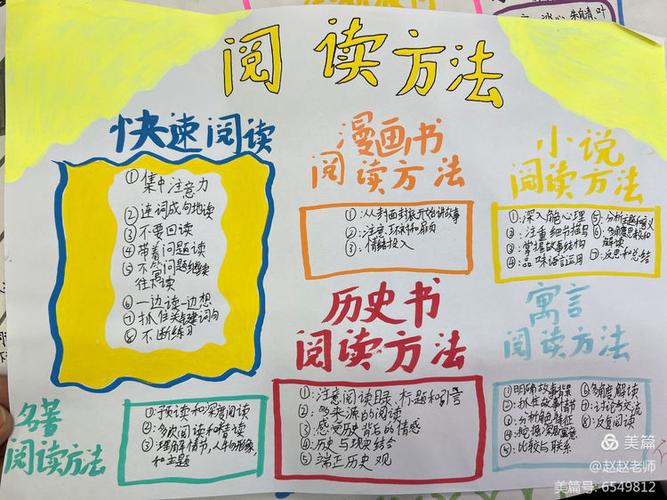 冰心、朱自清、叶
阅读方法
快速阅读
①集中注意力
②连词成句地读
③不要回读
④带着问题读
⑤不然问题继续
往下读
⑥一边读一边想
⑦抓住关键词句
⑧不断练习
漫画书
阅读方法
①:从封面封底开始讲故事
②:注意环衬和扉页
③:情绪投入
小说
阅读方法
①:深入能心理
②:注重细书描写
③:掌握故事结构
④:品味语言运用
⑤:分析主题和意义
⑥:多角度思考和
解读
⑦:反思和总结
历史书
阅读方法
①:注意阅读目录、标题和引言
②:多来源的阅读
③:感受历史背后的情感
④:历史与现实结合
⑤:端正历史观
寓言
阅读方法
①明确故事背景
②:抓住故事情节
③:分析角色特征
④:挖掘深层寓意
⑤:比较与联系
⑥多角度解读
⑦:讨论与交流
⑧:反复阅读
名著
阅读方法
①:预读和深度阅读
②:多次阅读和精读
③:理解情节,人物形象,
和主题
美篇
@赵赵老师
美篇号:6549812